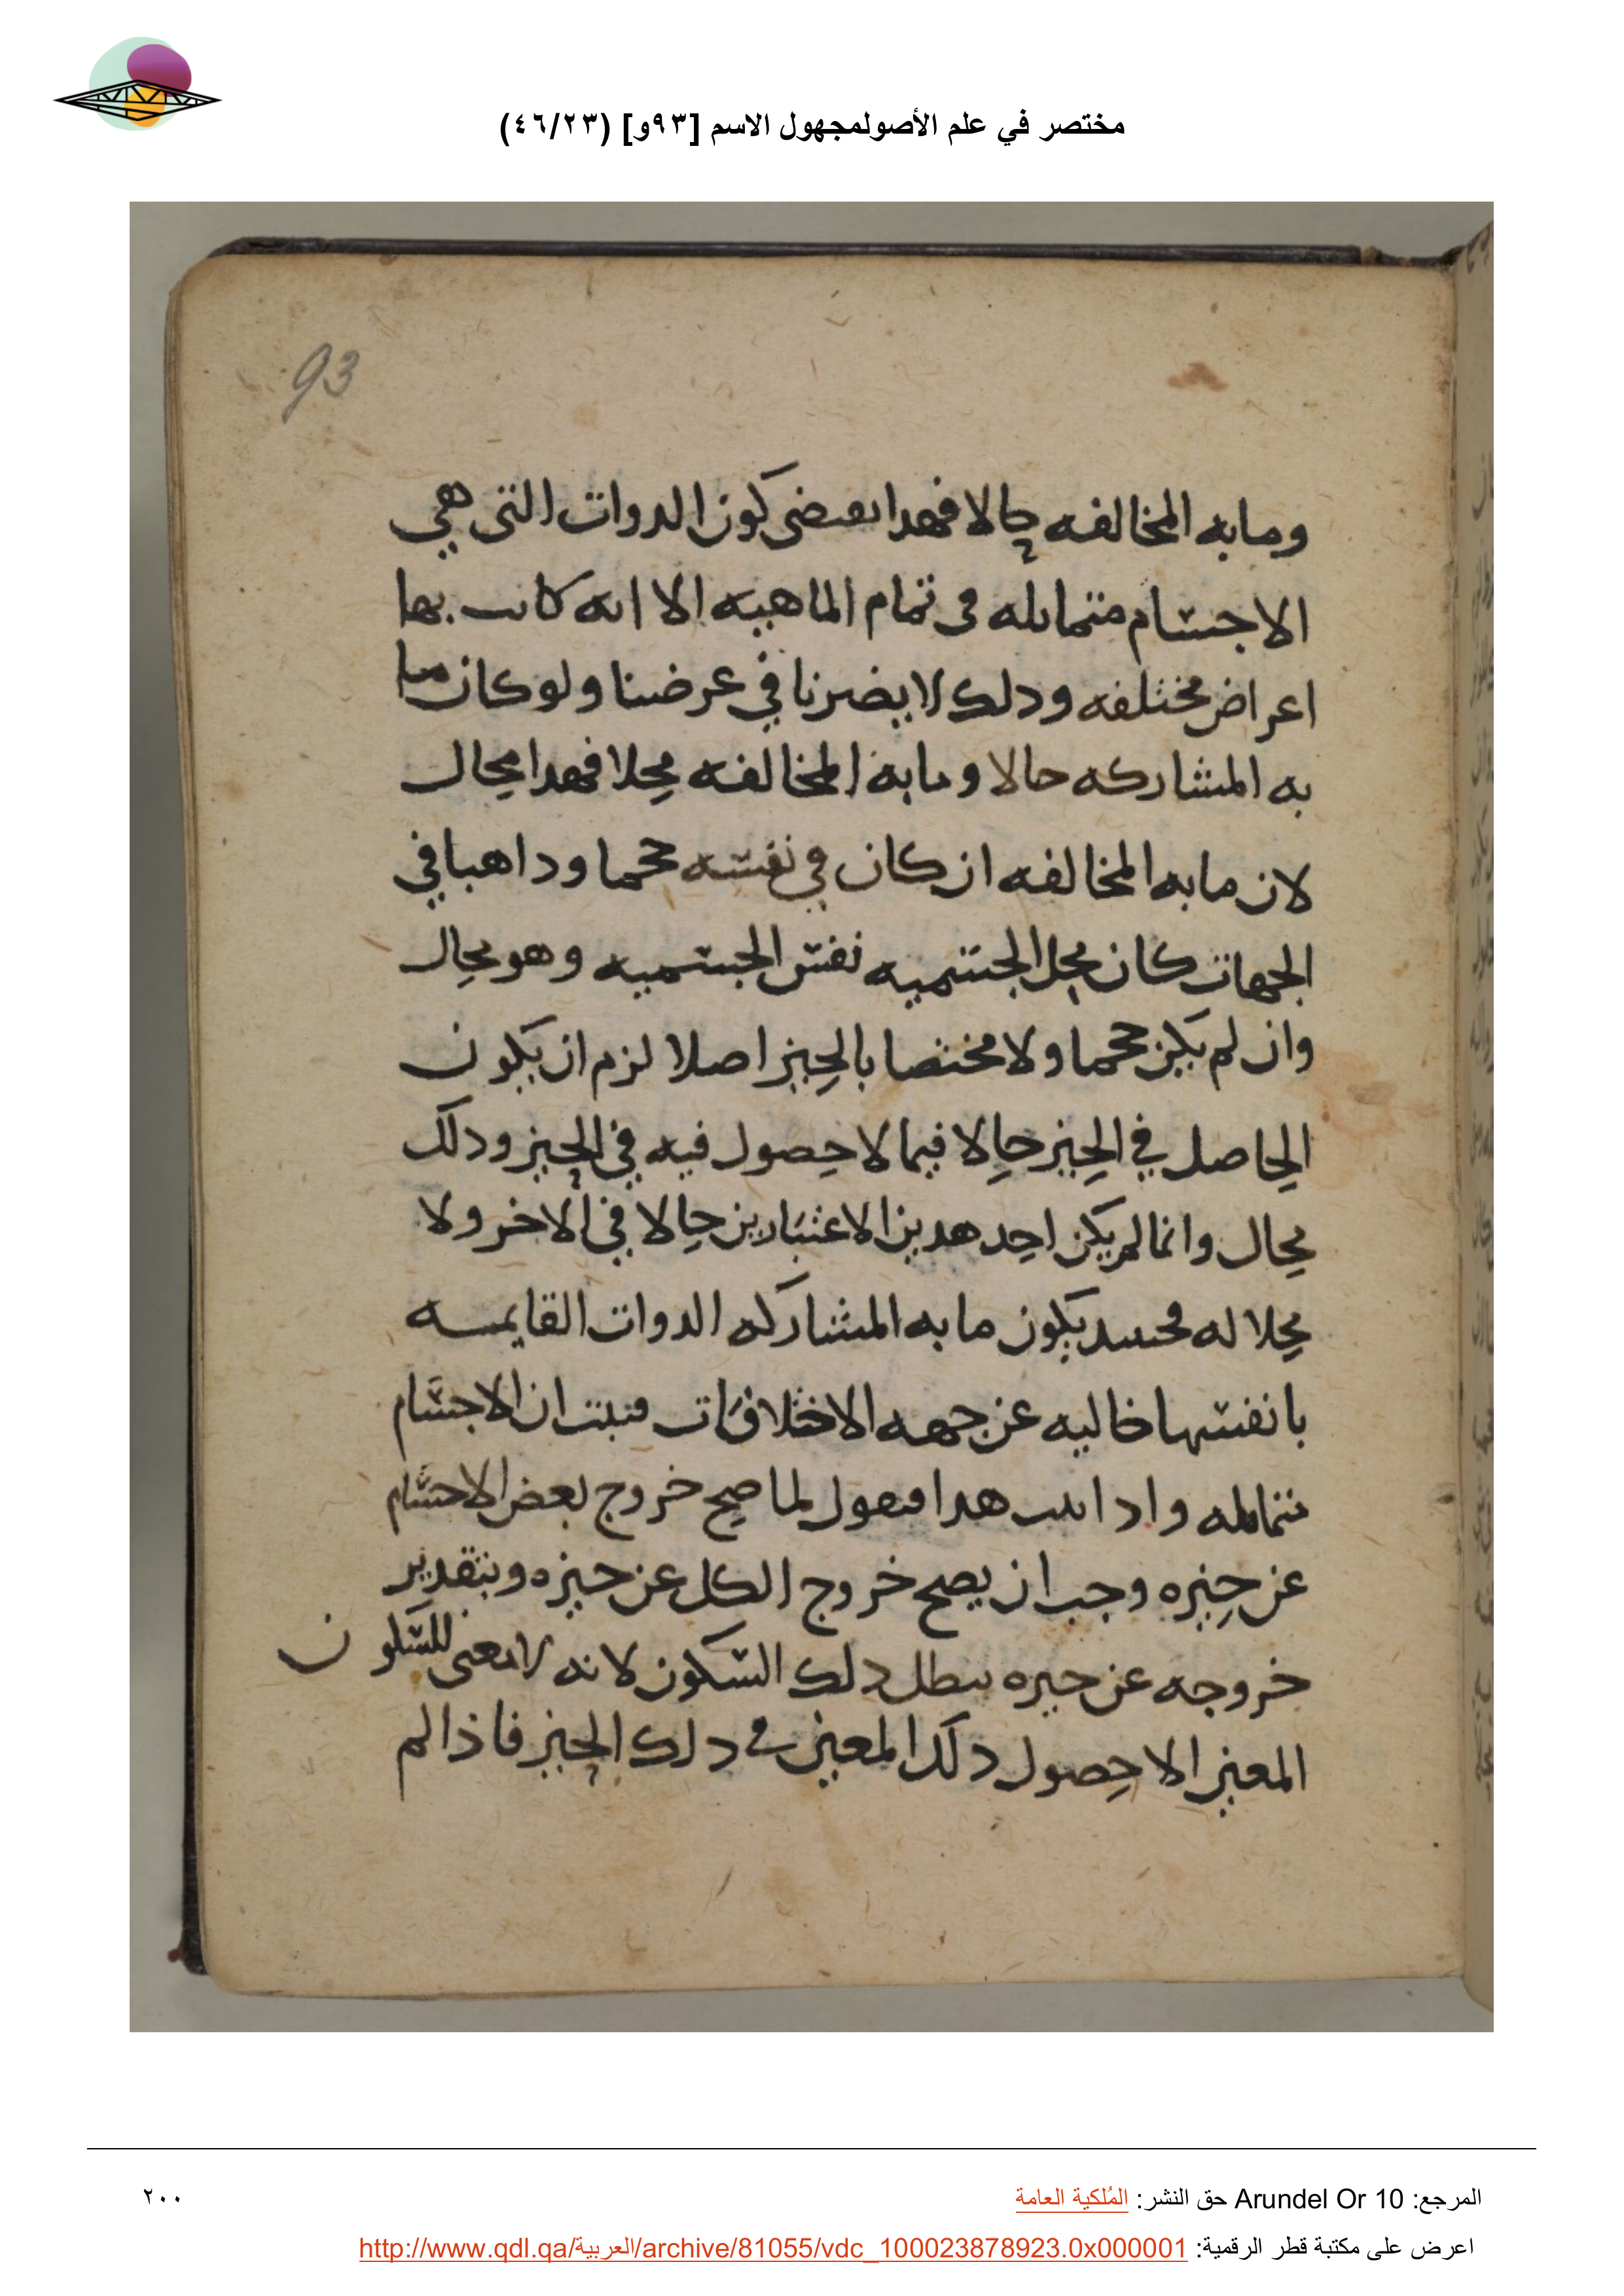 مختصر في علم الأصولمجهول الاسم [٩٣و] (٤٦/٢٣)
93
وما به المخالفه حالا فهدا يقتضى كون الدوات التى هي
الاجسام متماثله فى تمام الماهيه الا انه كانت بها
اعراض مختلفه ودلك لا يضرنا في عرضنا ولو كان ما
به المشاركه حالا وما به المخالفه محلا فهدا محال
لان ما به المخالفه ان كان في نفسه حجما وداهبا في
الجهات كان محل الجسميه نفس الجسميه وهو محال
وان لم يكن حجما ولا مختصا بالحيز اصلا لزم ان يكون
الحاصل في الحيز حالا فيما لا حصول فيه في الحيز ودلك
محال وانما لم يكن احد هدين الاعتبارين حالا في الاخر ولا
محلا له فحينيد يكون ما به المشاركه الدوات القايمه
بانفسها خاليه عن جهه الاختلافات فثبت ان الاجسام
متماثله وادا ثبت هدا فنقول لما صح خروج بعض الاجسام
عن حيزه وجب ان يصح خروج الكل عن حيزه وبتقدير
خروجه عن حيزه يبطل دلك السكون لانه لا معنى للسكون
المعين الا حصول دلك المعين في دلك الحيز فاذا لم
المرجع: Arundel Or 10 حق النشر: المُلكية العامة
٢٠٠
اعرض على مكتبة قطر الرقمية: http://www.qdl.qa/العربية/archive/81055/vdc_100023878923.0x000001